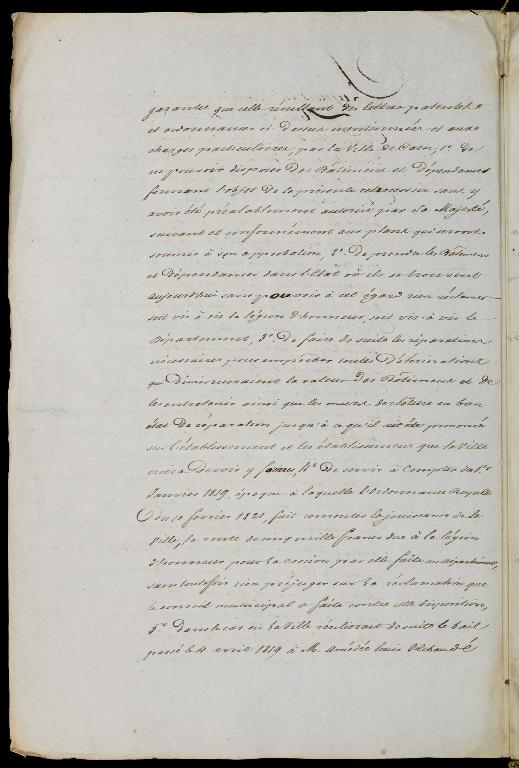 garantie que celle résultant des lettres patentes
et ordonnances ci dessus mentionnées et aux
charges particulières, par la Ville de Caen, 1.° de
ne pouvoir disposer des Bâtiments et dépendances
formant l'objet de la présente rétrocession sans y
avoir été préalablement autorisé par Sa Majesté,
suivant et conformément aux plans qui seront
soumis à son approbation, 2.° De prendre les Bâtimens
et Dépendances dans l'État où ils se trouvent
aujourd'hui sans pouvoir à cet égard rien réclamer
soit vis à vis la légion d'honneur, soit vis à vis le
Département, 3.° De faire de suite les réparations
nécessaires pour empêcher toutes détériorations
qui diminueraient la valeur des Bâtimens et de
les entretenir ainsi que les murs de clôture en bon
état de réparation jusqu'à ce qu'il ait été prononcé
sur l'établissement et les établissemens que la Ville
croira devoir y former, 4.° De servir à Compter du 1.er
Janvier 1819, époque à laquelle l'Ordonnance Royale
du 10 février 1821, fait remonter la jouissance de la
Ville, la rente de cinq mille francs due à la légion
d'honneur pour la cession par elle faite au département,
sans toutefois rien préjuger sur la réclamation que
le conseil municipal a faite contre cette disposition,
5.° Dans le cas où la Ville résilierait de suite le bail
passé le 4 avril 1819 à M. Amédée Louis